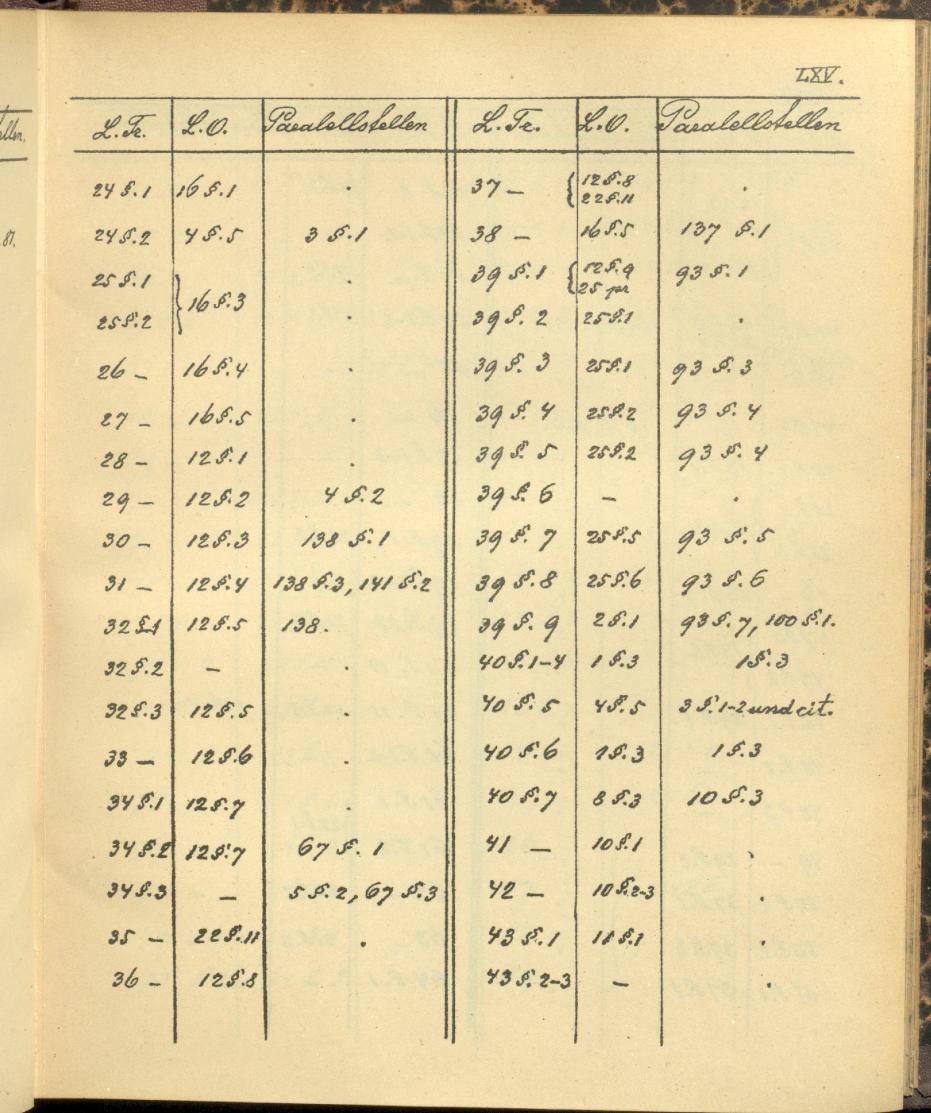 LXV.
L. Tr. L.O. Paralellstellen L. Tr. L.O. Paralellstellen
24 §.1 16 §.1 . 37 – { 12 §.8 .
22 §.11
24 §.2 4 §.5 3 §.1 38 – 16 §.5 137 §.1
25 §.1 } 16 §.3 . 39 §.1 { 12 §.9 93 §.1
25 pr
25 §.2 . 39 §. 2 25 §.1 .
26 – 16 §.4 . 39 §. 3 25 §.1 93 §. 3
27 – 16 §.5 . 39 §. 4 25 §.2 93 §. 4
28 – 12 §.1 . 39 §. 5 25 §.2 93 §. 4
29 – 12 §.2 4 §.2 39 §. 6 – .
30 – 12 §.3 138 §.1 39 §. 7 25 §.5 93 §. 5
31 – 12 §.4 138 §.3, 141 §.2 39 §.8 25 §.6 93 §.6
32 §.1 12 §.5 138. 39 §. 9 2 §.1 93 §. 7, 100 §.1.
32 §.2 – . 40 §.1-4 1 §.3 1 §.3
32 §.3 12 §.5 . 40 §. 5 4 §.5 3 §.1-2 und cit.
33 – 12 §.6 . 40 §.6 1 §.3 1 §.3
34 §.1 12 §.7 . 40 §.7 8 §.3 10 §.3
34 §.2 12 §.7 67 §. 1 41 – 10 §.1 .
34 §.3 – 5 §.2, 67 §.3 42 – 10 §.2-3 .
35 – 22 §.11 . 43 §.1 11 §.1 .
36 – 12 §.8 43 §.2-3 – .